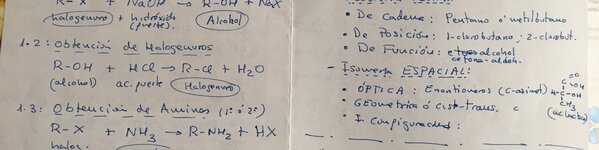 R-X + NaOH → R-OH + NaX
halogenuro + hidróxido Alcohol
(fuerte).
1.2: Obtención de Halogenuros
R-OH + HCl → R-Cl + H2O
(alcohol) ac. fuerte Halogenuro
1.3: Obtención de Aminas (1ª ó 2ª)
R-X + NH3 → R-NH2 + HX
halog.
• De Cadena: Pentano ó metilbutano
• De Posición: 1-clorobutano; 2-clorobut.
• De Función: alcohol
cetona-aldeh.
- Isomería ESPACIAL:
• ÓPTICA: Enantiómeros (C-asimet)
• Geométrica ó cis-trans.
• I. Configuracional:
=O
C-OH
H-C-OH
CH3
(ac. lactico)